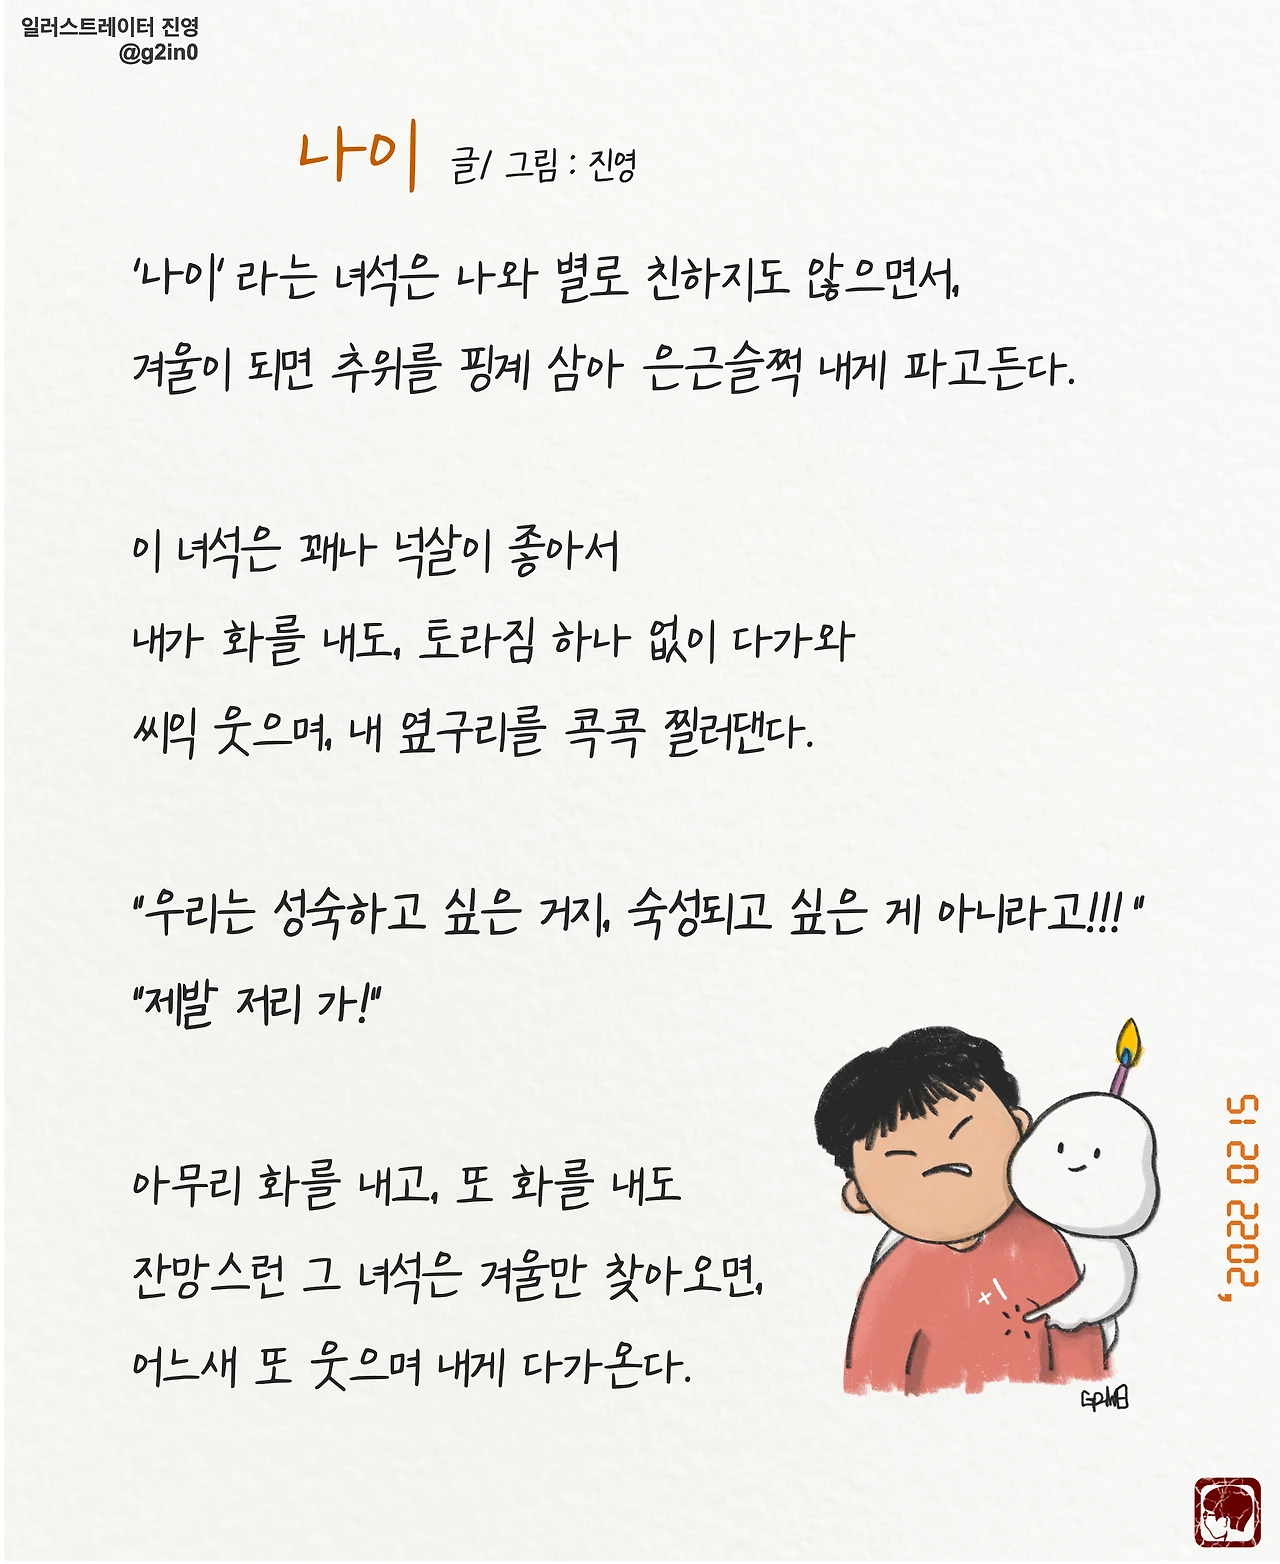 일러스트레이터 진영
@g2in0
나이 글/ 그림 : 진영
'나이' 라는 녀석은 나와 별로 친하지도 않으면서,
겨울이 되면 추위를 핑계 삼아 은근슬쩍 내게 파고든다.
이 녀석은 꽤나 넉살이 좋아서
내가 화를 내도, 토라짐 하나 없이 다가와
씨익 웃으며, 내 옆구리를 콕콕 찔러댄다.
"우리는 성숙하고 싶은 거지, 숙성되고 싶은 게 아니라고!!!"
"제발 저리 가!"
아무리 화를 내고, 또 화를 내도
잔망스런 그 녀석은 겨울만 찾아오면,
어느새 또 웃으며 내게 다가온다.
+1